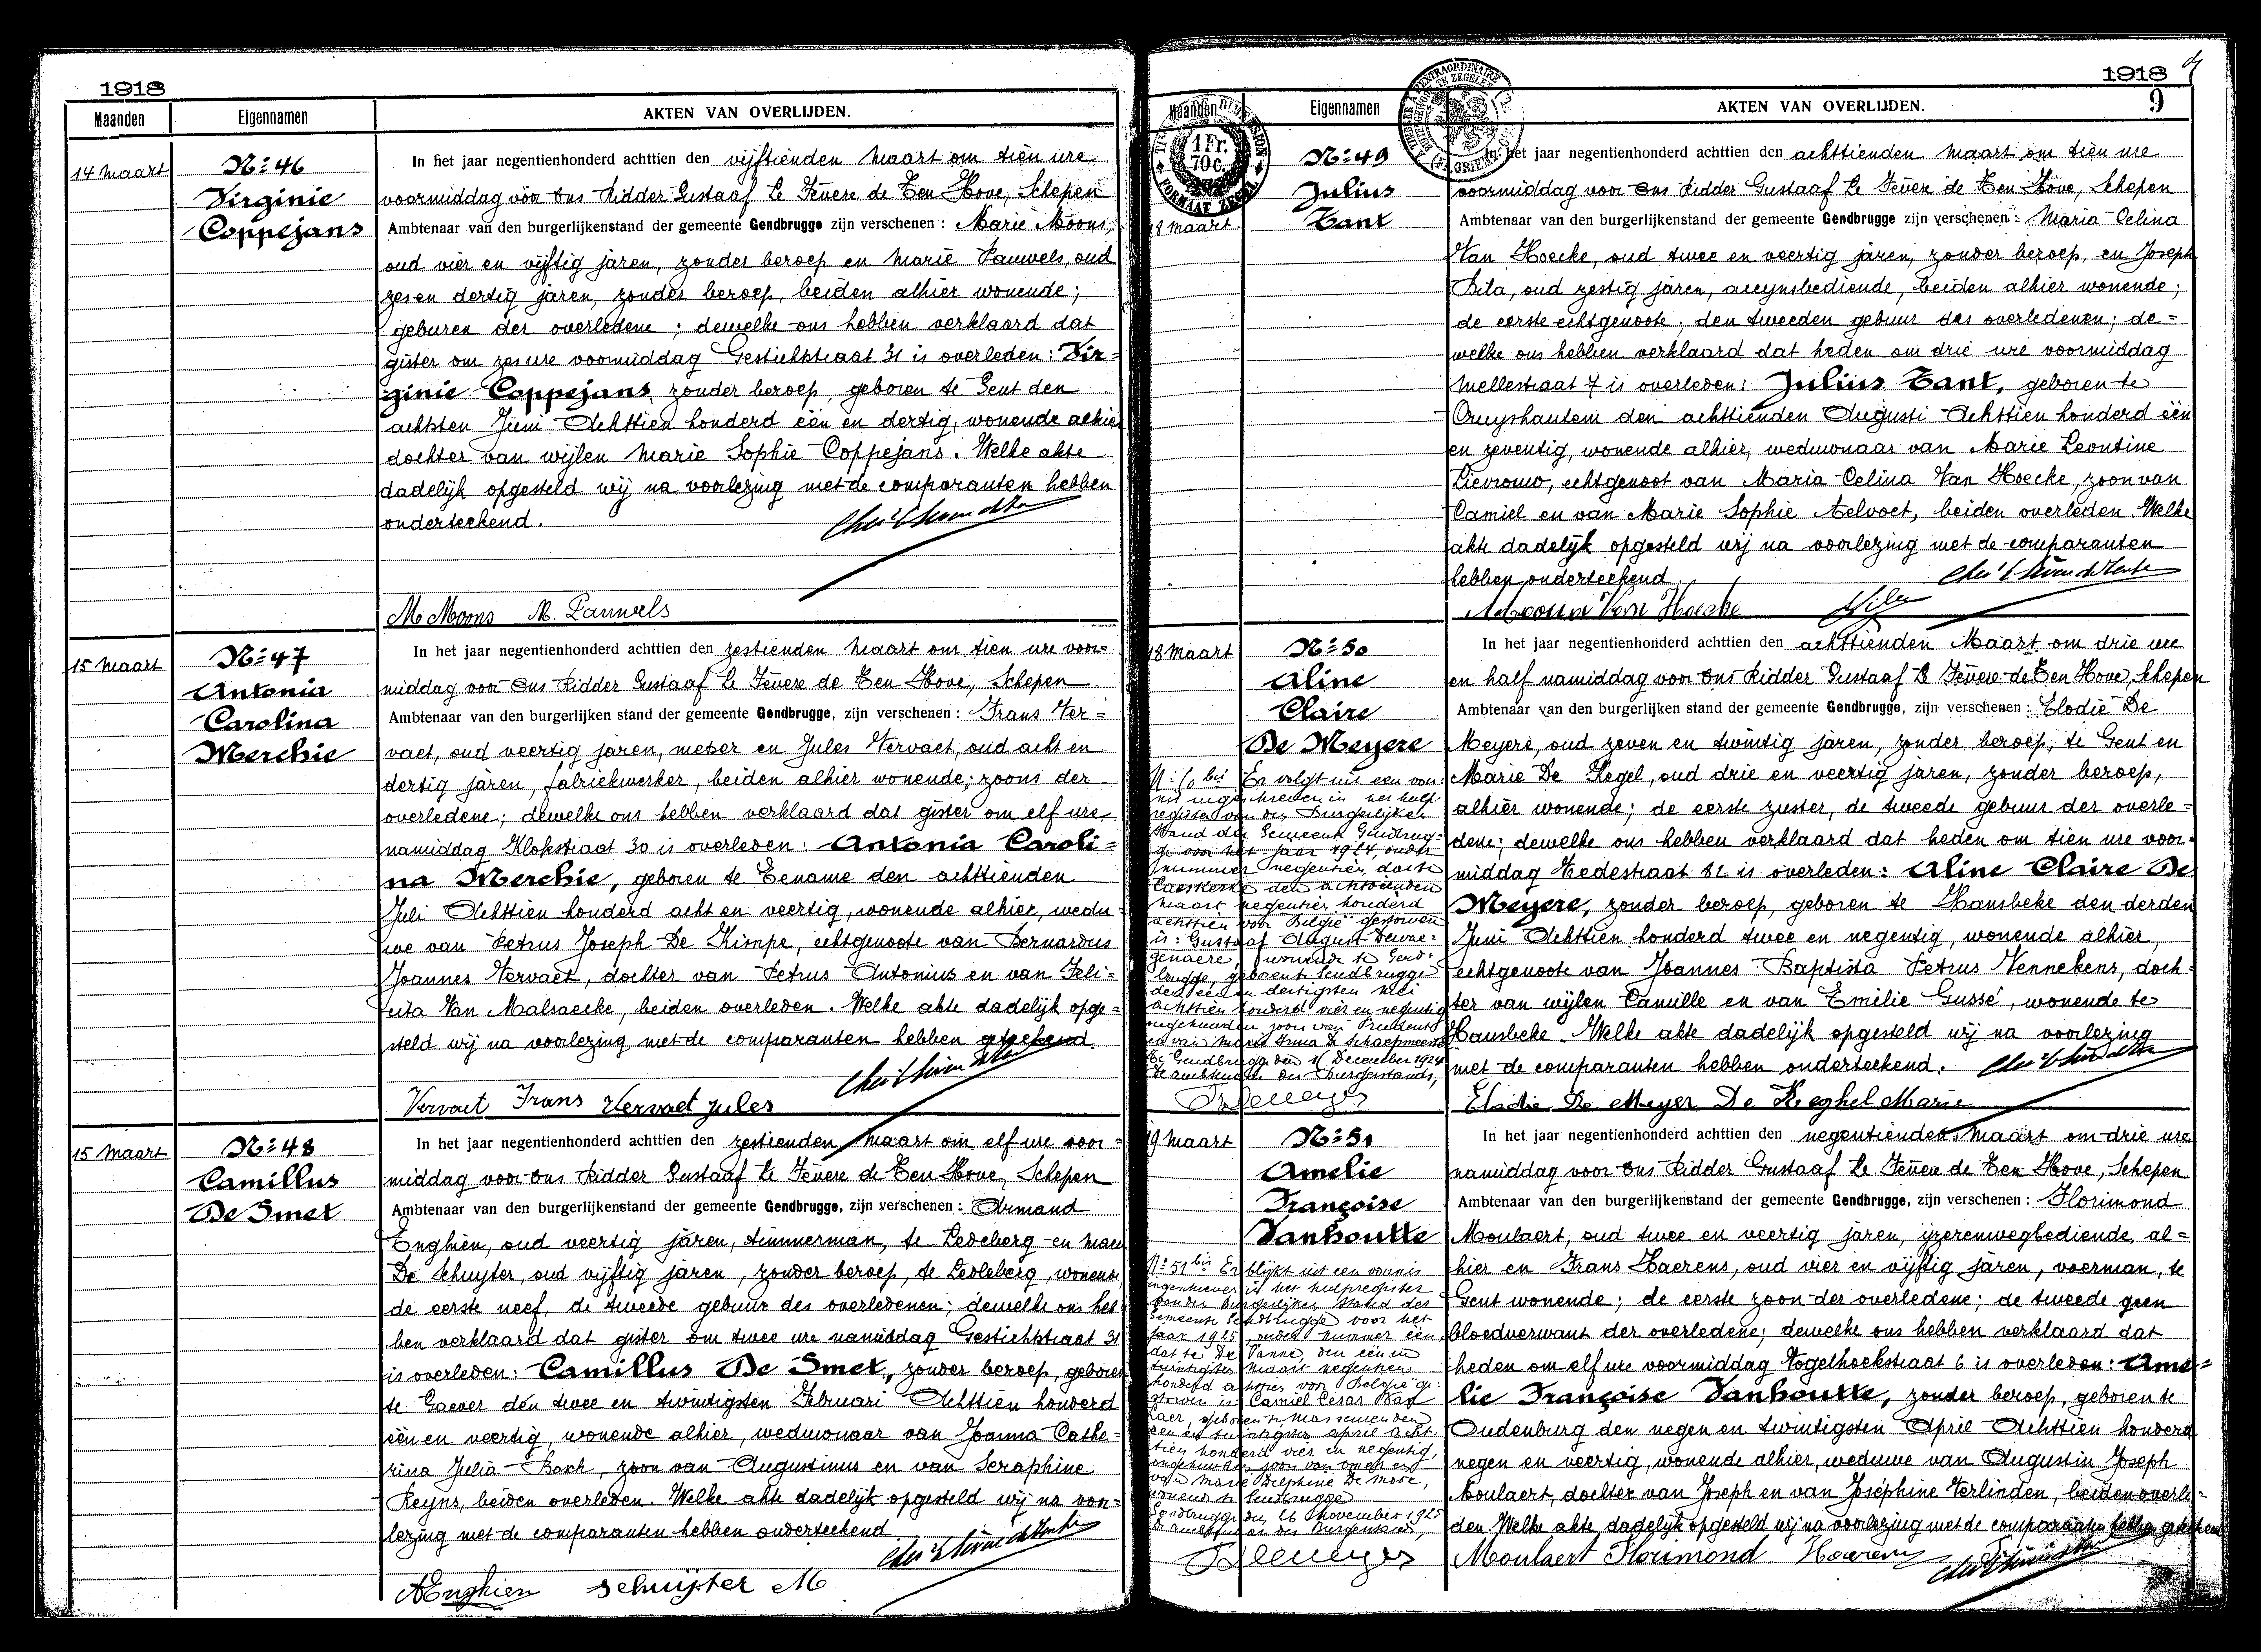 1918
Maanden
Eigennamen
AKTEN VAN OVERLIJDEN.
14 Maart
Nº 46
Virginie
Coppejans
In het jaar negentienhonderd achttien den vijftienden Maart om tien ure
voormiddag voor Ons Ridder Gustaaf le Fevere de Ten Hove, Schepen
Ambtenaar van den burgerlijkenstand der gemeente Gendbrugge zijn verschenen : Marie Moons,
oud vier en vijftig jaren, zonder beroep en Marie Pauwels, oud
zes en dertig jaren, zonder beroep, beiden alhier wonende;
geburen der overledene ; dewelke ons hebben verklaard dat
gister om zes ure voormiddag Gestichtstraat 31 is overleden : Vir=
ginie Coppejans, zonder beroep, geboren te Gent den
achtsten Juni Achttien honderd een en dertig, wonende alhier
dochter van wijlen Marie Sophie Coppejans. Welke akte
dadelijk opgesteld wij na voorlezing met de comparanten hebben
onderteekend.
M Moons M. Pauwels
15 Maart
Nº 47
Antonia
Carolina
Merchie
In het jaar negentienhonderd achttien den zestienden Maart om tien ure voor=
middag voor Ons Ridder Gustaaf le Fevere de Ten Hove, Schepen
Ambtenaar van den burgerlijken stand der gemeente Gendbrugge, zijn verschenen : Frans Ver=
vaet, oud veertig jaren, metser en Jules Vervaet, oud acht en
dertig jaren, fabriekwerker, beiden alhier wonende; zoons der
overledene; dewelke ons hebben verklaard dat gister om elf ure
namiddag Klokstraat 30 is overleden : Antonia Caroli=
na Merchie, geboren te Eename den achttienden
Juli Achttien honderd acht en veertig, wonende alhier, wedu=
we van Petrus Joseph De Kimpe, echtgenoote van Bernardus
Joannes Vervaet, dochter van Petrus Antonius en van Feli=
cita Van Malsaecke, beiden overleden. Welke akte dadelijk opge=
steld wij na voorlezing met de comparanten hebben geteekend.
Vervaet Frans Vervaet Jules
15 Maart
Nº 48
Camillus
De Smet
In het jaar negentienhonderd achttien den zestienden Maart om elf ure voor=
middag voor ons Ridder Gustaaf le Fevere de Ten Hove, Schepen
Ambtenaar van den burgerlijkenstand der gemeente Gendbrugge, zijn verschenen : Armand
Enghien, oud veertig jaren, timmerman, te Ledeberg en
De Schuyter, oud vijftig jaren, zonder beroep, te Ledeberg, wonende
de eerste neef, de tweede gebuur des overledenen; dewelke ons heb
ben verklaard dat gister om twee ure namiddag Gestichtstraat 31
is overleden : Camillus De Smet, zonder beroep, geboren
te Gaever den twee en twintigsten Februari Achttien honderd
een en veertig, wonende alhier, weduwnaar van Joanna Cathe=
rina Julia Bock, zoon van Augustinus en van Seraphine
Reyns, beiden overleden. Welke akte dadelijk opgesteld wij na voor=
lezing met de comparanten hebben onderteekend
AEnghien Schuijter M
1918
9
Maanden
Eigennamen
AKTEN VAN OVERLIJDEN.
1 Fr.
70 c.
18 Maart
Nº 49
Julius
Tant
In het jaar negentienhonderd achttien den achttienden Maart om tien ure
voormiddag voor Ons Ridder Gustaaf le Fevere de Ten Hove, Schepen
Ambtenaar van den burgerlijkenstand der gemeente Gendbrugge zijn verschenen : Maria Celina
Van Hoecke, oud twee en veertig jaren, zonder beroep, en Joseph
Bila, oud zestig jaren, accynsbediende, beiden alhier wonende;
de eerste echtgenoote; den tweeden gebuur des overledenen; de=
welke ons hebben verklaard dat heden om drie ure voormiddag
Mellestraat 7 is overleden : Julius Tant, geboren te
Cruyshautem den achttienden Augusti Achttien honderd een
en zeventig, wonende alhier, weduwnaar van Marie Leontine
Lievrouw, echtgenoot van Maria Celina Van Hoecke, zoon van
Camiel en van Marie Sophie Aelvoet, beiden overleden. Welke
akte dadelijk opgesteld wij na voorlezing met de comparanten
hebben onderteekend.
Van Hoecke
18 Maart
Nº 50
Aline
Claire
De Meyere
In het jaar negentienhonderd achttien den achttienden Maart om drie ure
en half namiddag voor ons Ridder Gustaaf le Fevere de Ten Hove, Schepen
Ambtenaar van den burgerlijken stand der gemeente Gendbrugge, zijn verschenen : Elodie De
Meyere, oud zeven en twintig jaren, zonder beroep, te Gent en
Marie De Regel, oud drie en veertig jaren, zonder beroep,
alhier wonende; de eerste zuster, de tweede gebuur der overle=
dene; dewelke ons hebben verklaard dat heden om tien ure voor=
middag Hedestraat 82 is overleden : Aline Claire De
Meyere, zonder beroep, geboren te Hansbeke den derden
Juni Achttien honderd twee en negentig, wonende alhier,
echtgenoote van Joannes Baptista Petrus Vennekens, doch=
ter van wijlen Camille en van Emilie Gussé, wonende te
Hansbeke. Welke akte dadelijk opgesteld wij na voorlezing
met de comparanten hebben onderteekend.
Elodie De Meyer De Reghel Marie
Nº 50 bis Er volgt uit een von=
nis ingeschreven in het hulp=
register van den Burgerlijken
Stand der Gemeente Gendbrug=
ge voor het jaar 1924, onder
nummer negentien, dat te
Caeskerke den achttienden
Maart negentien honderd
achttien voor België gestorven
is : Gustaaf August Dewae=
genaere, wonende te Gend=
brugge, geboren te Gendbrugge
den een en dertigsten Mei
achttien honderd vier en negentig
ongehuwden zoon van Prudent
en van Maria Irma De Schaepmeester
Te Gendbrugge den December 1924
De ambtenaar des Burgerstands,
19 Maart
Nº 51
Amelie
Françoise
Vanhoutte
In het jaar negentienhonderd achttien den negentienden Maart om drie ure
namiddag voor Ons Ridder Gustaaf le Fevere de Ten Hove, Schepen
Ambtenaar van den burgerlijkenstand der gemeente Gendbrugge, zijn verschenen : Florimond
Moulaert, oud twee en veertig jaren, ijzerenwegbediende, al=
hier en Frans Haerens, oud vier en vijftig jaren, voerman, te
Gent wonende; de eerste zoon der overledene; de tweede geen
bloedverwant der overledene; dewelke ons hebben verklaard dat
heden om elf ure voormiddag Vogelhoekstraat 6 is overleden : Ame=
lie Françoise Vanhoutte, zonder beroep, geboren te
Oudenburg den negen en twintigsten April Achttien honderd
negen en veertig, wonende alhier, weduwe van Augustin Joseph
Moulaert, dochter van Joseph en van Joséphine Verlinden, beiden overle=
den. Welke akte dadelijk opgesteld wij na voorlezing met de comparanten hebben geteekend
Moulaert Florimond Haerens
Nº 51 bis Er blijkt uit een vonnis
ingeschreven in het hulpregister
van den burgerlijken stand der
Gemeente Gendbrugge voor het
jaar 1925, onder nummer een
dat te De Panne, den een en
twintigsten Maart negentien
honderd achttien voor België ge=
storven is Camiel Cesar
geboren te Massemen den
een en twintigsten april acht=
tien honderd vier en negentig,
ongehuwden zoon van
van Marie Delphine De Moor,
wonend te Gendbrugge
Gendbrugge den 26 November 1925
De ambtenaar des Burgerstands,